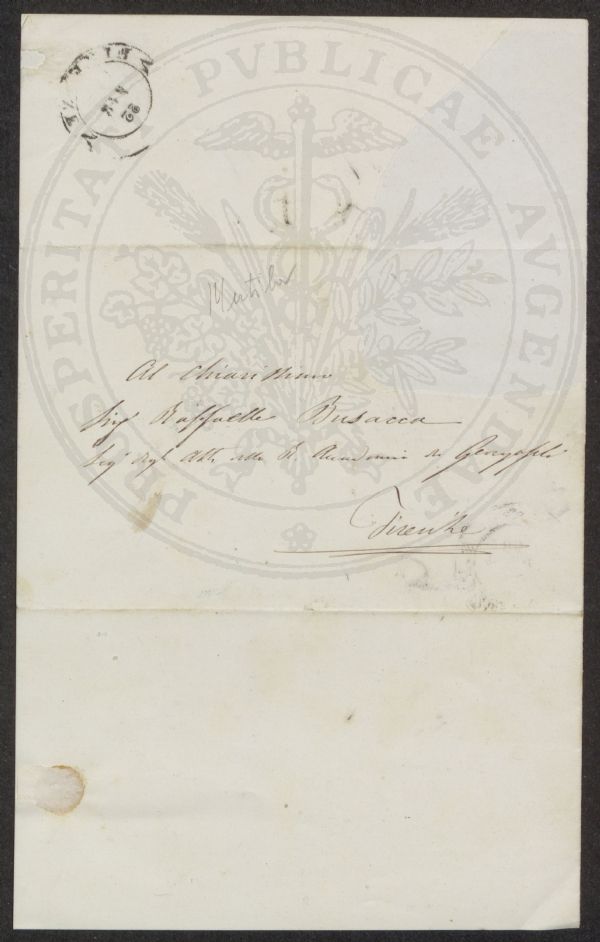 PROSPERITATI PVBLICAE AVGENDAE
Al Chiarissimo
Sigr Raffaelle Busacca
Segr degli Atti della R. Accademia de Georgofili
Firenze